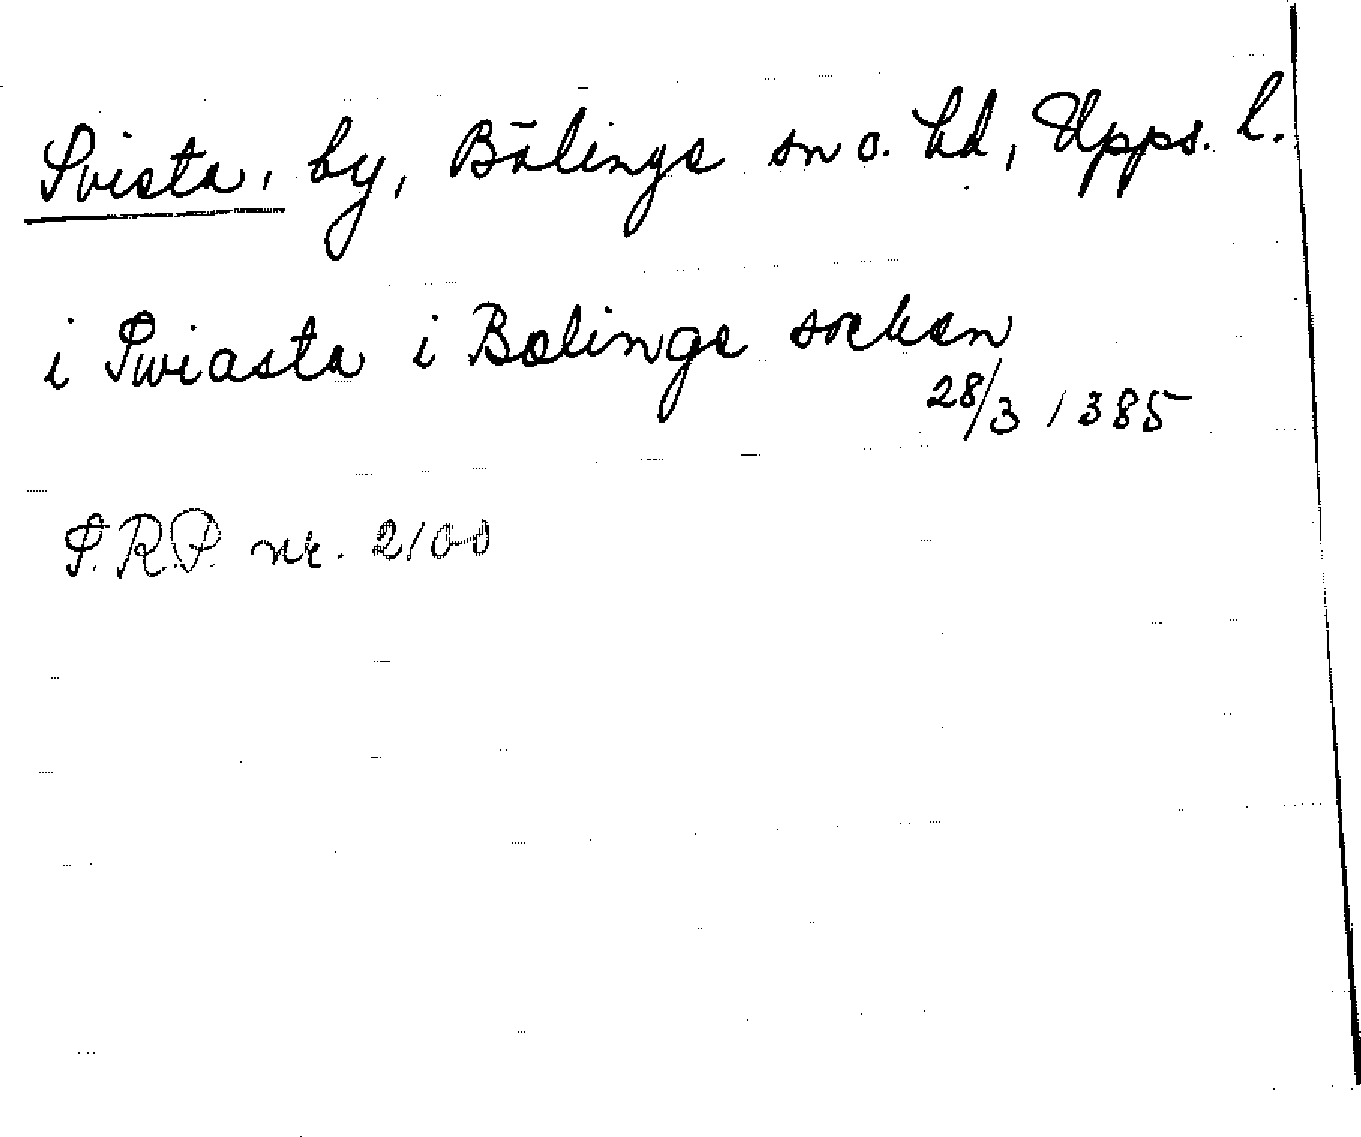 Svista, by, Bälinge sn o. hd, Upps. l.
i Swiasta i Bælinge sockæn
28/3 1385
S.R.P. nr. 2100